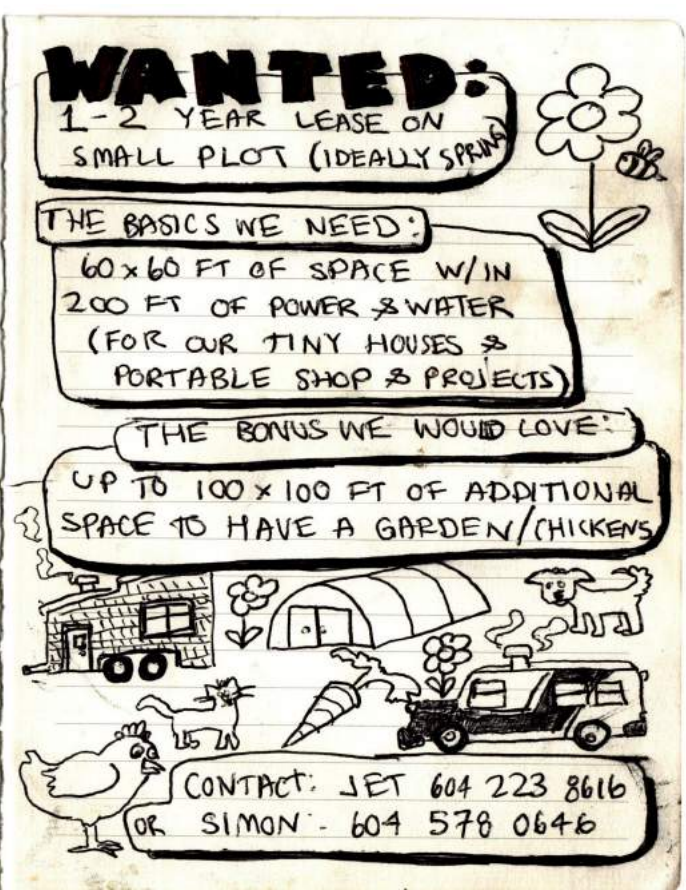 WANTED:
1-2 YEAR LEASE ON
SMALL PLOT (IDEALLY SPRING)
THE BASICS WE NEED:
60x60 FT OF SPACE W/IN
200 FT OF POWER & WATER
(FOR OUR TINY HOUSES &
PORTABLE SHOP & PROJECTS)
THE BONUS WE WOULD LOVE:
UP TO 100x100 FT OF ADDITIONAL
SPACE TO HAVE A GARDEN/CHICKENS
CONTACT: JET 604 223 8616
OR SIMON - 604 578 0646